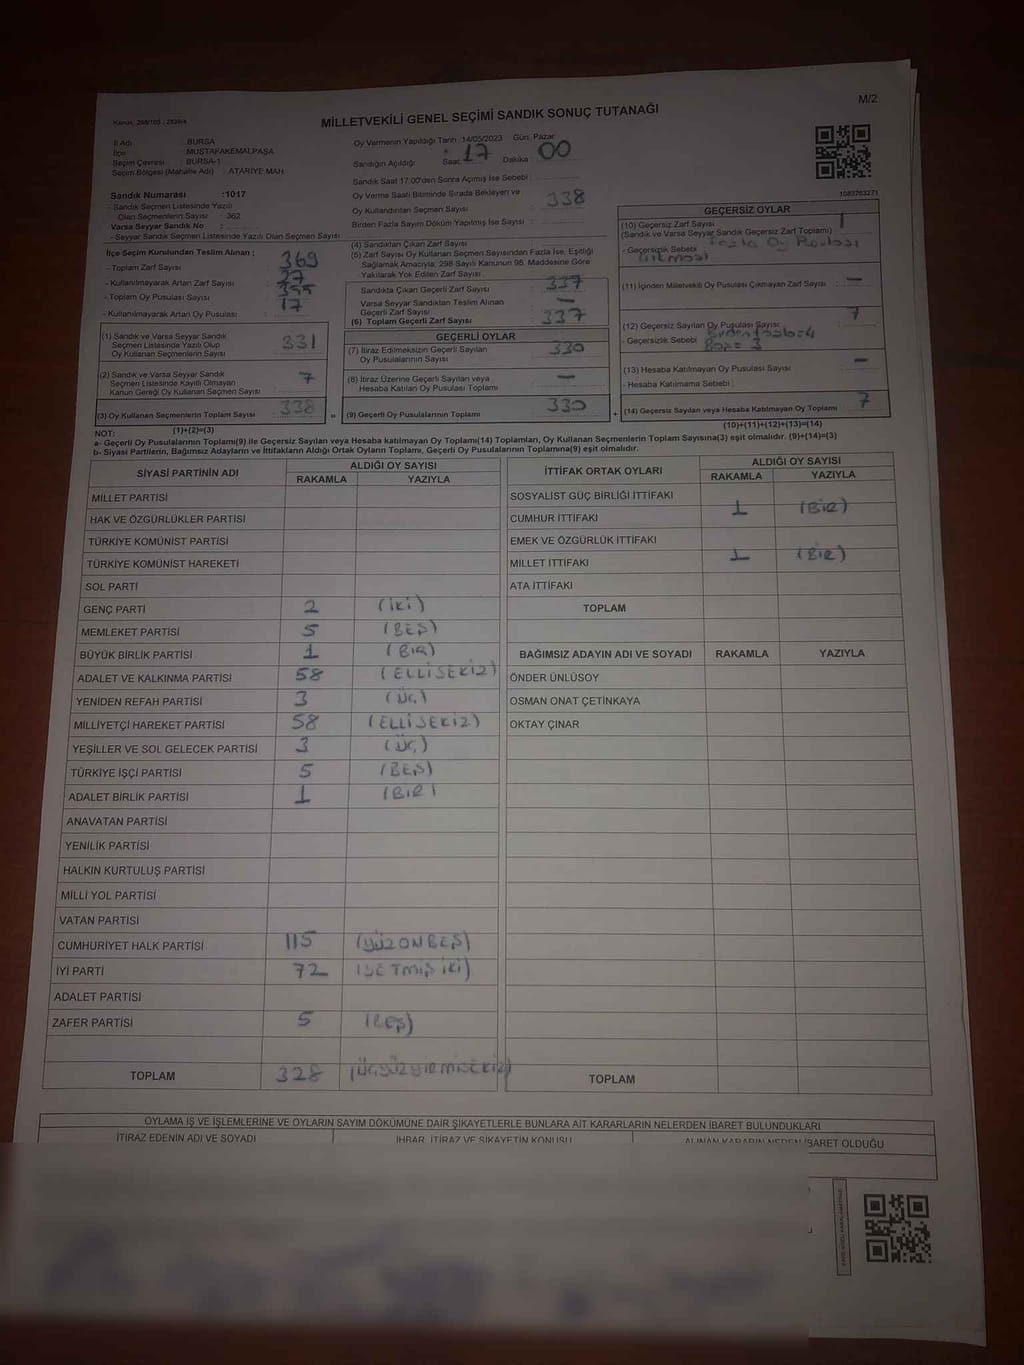 M/2
Kanun: 298/105 , 2839/4
MİLLETVEKİLİ GENEL SEÇİMİ SANDIK SONUÇ TUTANAĞI
İl Adı : BURSA
İlçe : MUSTAFAKEMALPAŞA
Seçim Çevresi : BURSA-1
Seçim Bölgesi (Mahalle Adı) : ATARİYE MAH.
Sandık Numarası :1017
- Sandık Seçmen Listesinde Yazılı
Olan Seçmenlerin Sayısı 362
Varsa Seyyar Sandık No :
- Seyyar Sandık Seçmen Listesinde Yazılı Olan Seçmen Sayısı:
Oy Vermenin Yapıldığı Tarih :14/05/2023 Gün: Pazar
Sandığın Açıldığı Saat: 17 Dakika: 00
Sandık Saat 17:00'den Sonra Açılmış İse Sebebi :
Oy Verme Saati Bitiminde Sırada Bekleyen ve
Oy Kullandırılan Seçmen Sayısı : 338
Birden Fazla Sayım Döküm Yapılmış İse Sayısı :
1083763271
İlçe Seçim Kurulundan Teslim Alınan ;
- Toplam Zarf Sayısı : 369
- Kullanılmayarak Artan Zarf Sayısı :
- Toplam Oy Pusulası Sayısı : 355
- Kullanılmayarak Artan Oy Pusulası : 17
(1) Sandık ve Varsa Seyyar Sandık
Seçmen Listesinde Yazılı Olup
Oy Kullanan Seçmenlerin Sayısı 331
(2) Sandık ve Varsa Seyyar Sandık
Seçmen Listesinde Kayıtlı Olmayan
Kanun Gereği Oy Kullanan Seçmen Sayısı 7
(3) Oy Kullanan Seçmenlerin Toplam Sayısı : 338
(1)+(2)=(3)
(4) Sandıktan Çıkan Zarf Sayısı
(5) Zarf Sayısı Oy Kullanan Seçmen Sayısından Fazla İse, Eşitliği
Sağlamak Amacıyla; 298 Sayılı Kanunun 98. Maddesine Göre
Yakılarak Yok Edilen Zarf Sayısı
Sandıkta Çıkan Geçerli Zarf Sayısı : 337
Varsa Seyyar Sandıktan Teslim Alınan
Geçerli Zarf Sayısı : —
(6) Toplam Geçerli Zarf Sayısı : 337
GEÇERLİ OYLAR
(7) İtiraz Edilmeksizin Geçerli Sayılan
Oy Pusulalarının Sayısı : 330
(8) İtiraz Üzerine Geçerli Sayılan veya
Hesaba Katılan Oy Pusulası Toplamı : —
= (9) Geçerli Oy Pusulalarının Toplamı : 330 +
GEÇERSİZ OYLAR
(10) Geçersiz Zarf Sayısı : 1
(Sandık ve Varsa Seyyar Sandık Geçersiz Zarf Toplamı)
- Geçersizlik Sebebi : Fazla Oy Pusulası
Çıkması
(11) İçinden Milletvekili Oy Pusulası Çıkmayan Zarf Sayısı : —
(12) Geçersiz Sayılan Oy Pusulası Sayısı : 7
- Geçersizlik Sebebi : Birden fazla=4
Boş= 3
(13) Hesaba Katılmayan Oy Pusulası Sayısı : —
- Hesaba Katılmama Sebebi :
(14) Geçersiz Sayılan veya Hesaba Katılmayan Oy Toplamı : 7
(10)+(11)+(12)+(13)=(14)
NOT:
a- Geçerli Oy Pusulalarının Toplamı(9) ile Geçersiz Sayılan veya Hesaba katılmayan Oy Toplamı(14) Toplamları, Oy Kullanan Seçmenlerin Toplam Sayısına(3) eşit olmalıdır. (9)+(14)=(3)
b- Siyasi Partilerin, Bağımsız Adayların ve İttifakların Aldığı Ortak Oyların Toplamı, Geçerli Oy Pusulalarının Toplamına(9) eşit olmalıdır.
SİYASİ PARTİNİN ADI ALDIĞI OY SAYISI
RAKAMLA YAZIYLA
MİLLET PARTİSİ
HAK VE ÖZGÜRLÜKLER PARTİSİ
TÜRKİYE KOMÜNİST PARTİSİ
TÜRKİYE KOMÜNİST HAREKETİ
SOL PARTİ
GENÇ PARTİ 2 (İKİ)
MEMLEKET PARTİSİ 5 (BEŞ)
BÜYÜK BİRLİK PARTİSİ 1 (BİR)
ADALET VE KALKINMA PARTİSİ 58 (ELLİSEKİZ)
YENİDEN REFAH PARTİSİ 3 (ÜÇ)
MİLLİYETÇİ HAREKET PARTİSİ 58 (ELLİSEKİZ)
YEŞİLLER VE SOL GELECEK PARTİSİ 3 (ÜÇ)
TÜRKİYE İŞÇİ PARTİSİ 5 (BEŞ)
ADALET BİRLİK PARTİSİ 1 (BİR)
ANAVATAN PARTİSİ
YENİLİK PARTİSİ
HALKIN KURTULUŞ PARTİSİ
MİLLİ YOL PARTİSİ
VATAN PARTİSİ
CUMHURİYET HALK PARTİSİ 115 (YÜZONBEŞ)
İYİ PARTİ 72 (YETMİŞİKİ)
ADALET PARTİSİ
ZAFER PARTİSİ 5 (BEŞ)
TOPLAM 328 (ÜÇYÜZYİRMİSEKİZ)
İTTİFAK ORTAK OYLARI ALDIĞI OY SAYISI
RAKAMLA YAZIYLA
SOSYALİST GÜÇ BİRLİĞİ İTTİFAKI
CUMHUR İTTİFAKI 1 (BİR)
EMEK VE ÖZGÜRLÜK İTTİFAKI
MİLLET İTTİFAKI 1 (BİR)
ATA İTTİFAKI
TOPLAM
BAĞIMSIZ ADAYIN ADI VE SOYADI RAKAMLA YAZIYLA
ÖNDER ÜNLÜSOY
OSMAN ONAT ÇETİNKAYA
OKTAY ÇINAR
TOPLAM
OYLAMA İŞ VE İŞLEMLERİNE VE OYLARIN SAYIM DÖKÜMÜNE DAİR ŞİKAYETLERLE BUNLARA AİT KARARLARIN NELERDEN İBARET BULUNDUKLARI
İTİRAZ EDENİN ADI VE SOYADI İHBAR, İTİRAZ VE ŞİKAYETİN KONUSU ALINAN KARARIN NEDEN İBARET OLDUĞU